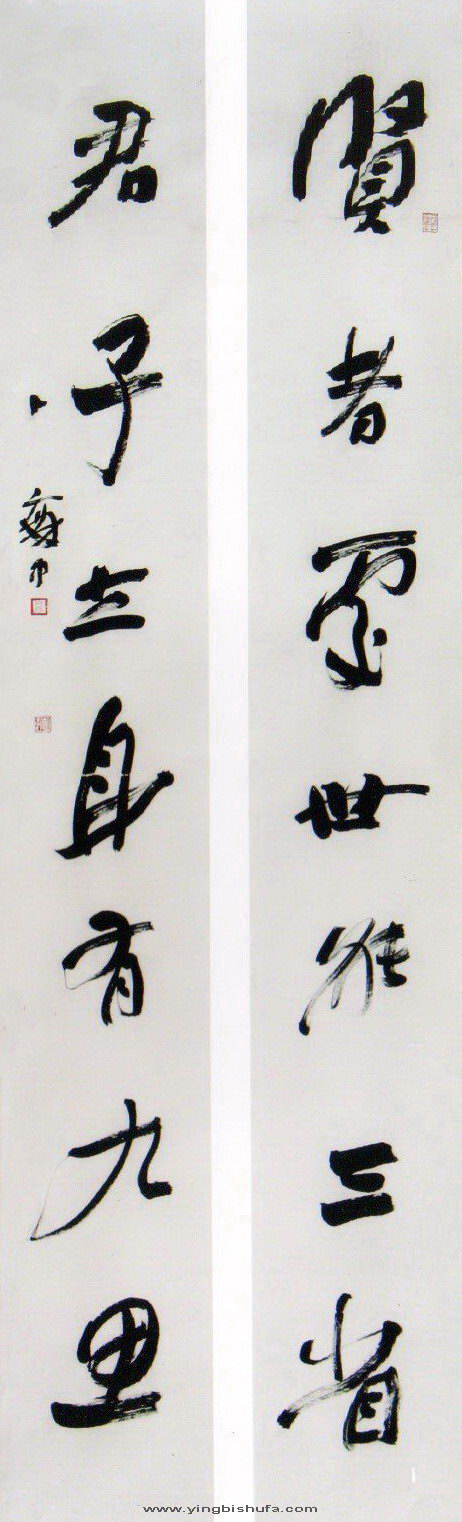 賢者處世能三省
君子立身有九思
www.yingbishufa.com